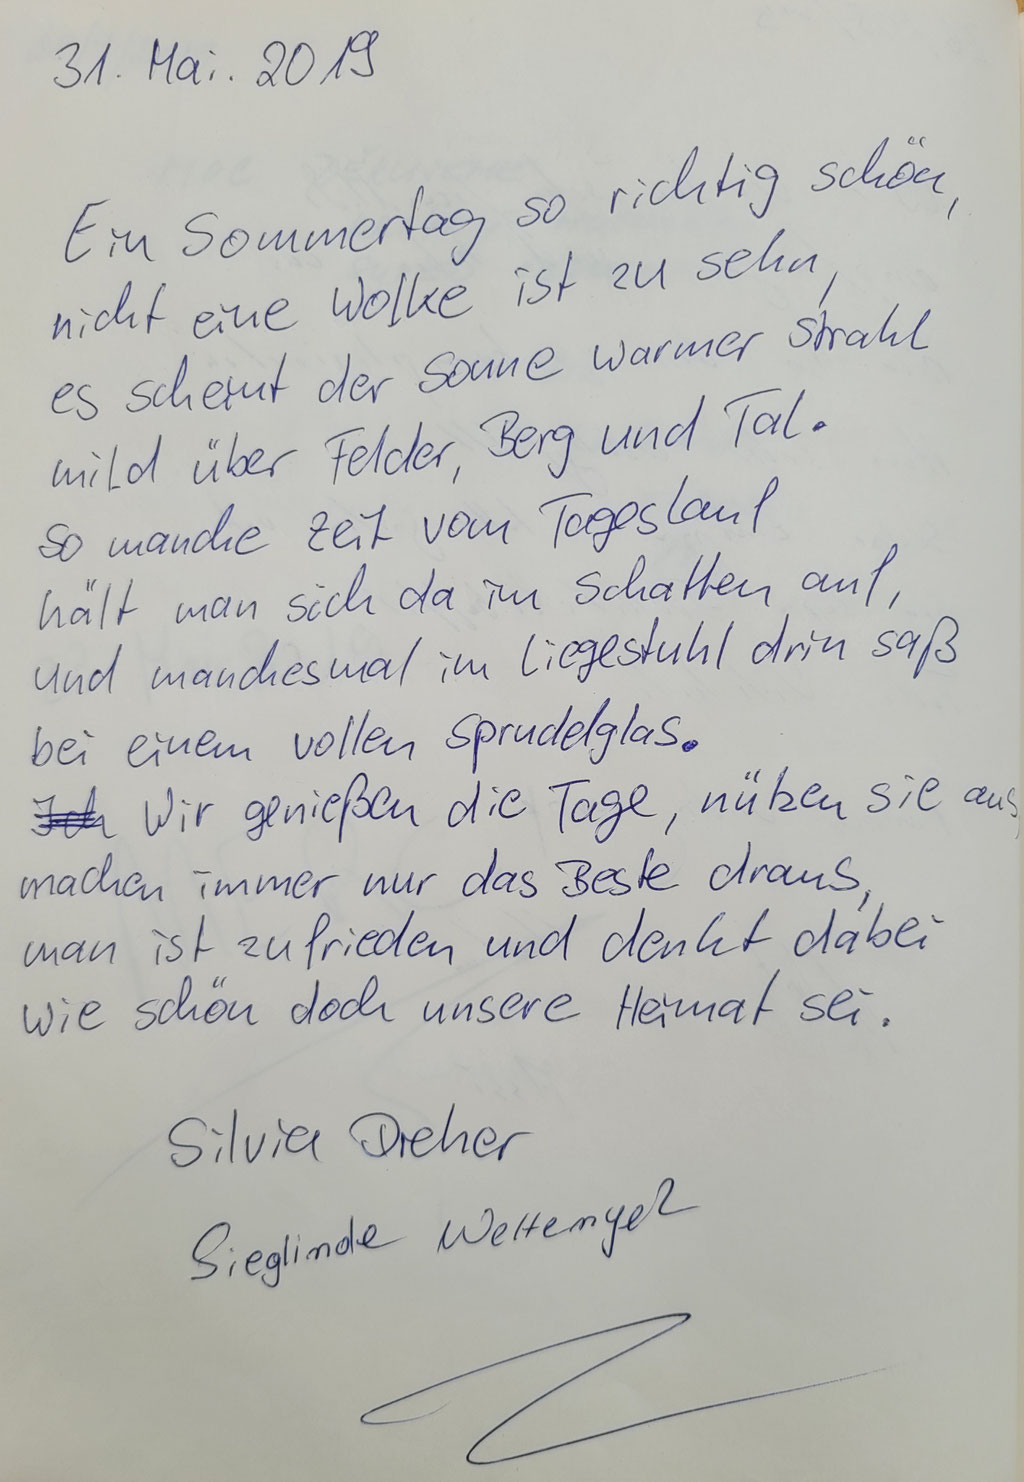 31. Mai. 2019
Ein Sommertag so richtig schön,
nicht eine Wolke ist zu sehn,
es scheint der Sonne warmer Strahl
mild über Felder, Berg und Tal.
so manche Zeit vom Tageslauf
hält man sich da im Schatten auf,
und manchesmal im Liegestuhl drin saß
bei einem vollen Sprudelglas.
Ich Wir genießen die Tage, nützen sie aus,
machen immer nur das Beste draus,
man ist zufrieden und denkt dabei
wie schön doch unsere Heimat sei.
Silvia Dreher
Sieglinde Wettengel